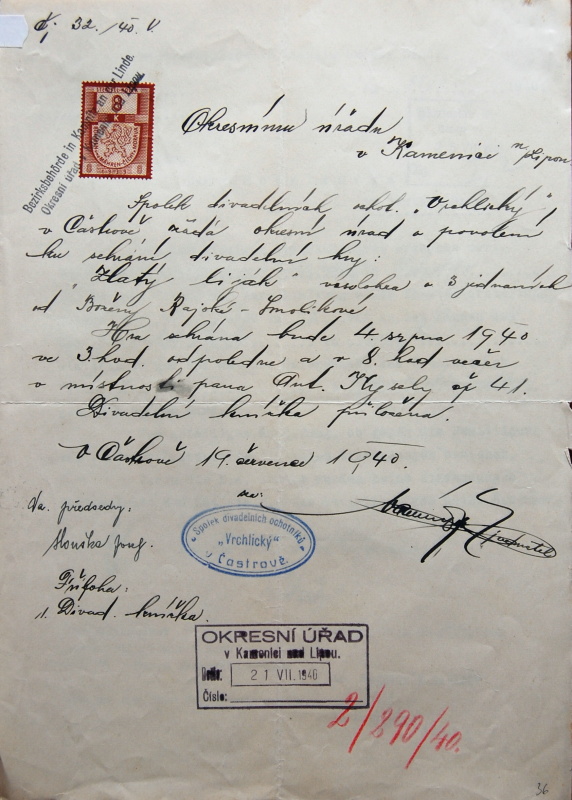 32./40. V.
Bezirksbehörde in Kamenitz an der Linde.
Okresní úřad v Kamenici n. Lipou.
8
K
BÖHMEN U. MÄHREN-ČECHY A MORAVA
Okresnímu úřadu
v Kamenici n/Lipou
Spolek divadelních ochot. "Vrchlický"
v Častrově žádá okresní úřad o povolení
ku sehrání divadelní hry:
"Zlatý liják" veselohra o 3 jednáních
od Boženy Rajské-Smolíkové
Hra sehrána bude 4. srpna 1940
ve 3. hod. odpoledne a v 8. hod večer
v místnosti pana Ant. Kysely čp 41.
Divadelní knížka přiložena.
V Častrově 19. července 1940.
Za předsedy:
Slouka Jos.
Spolek divadelních ochotníků
"Vrchlický"
v Častrově.
Příloha:
1. Divad. knížka.
OKRESNÍ ÚŘAD
v Kamenici nad Lipou.
Došlo: 21 VII. 1940
Číslo:
2/890/40.
36